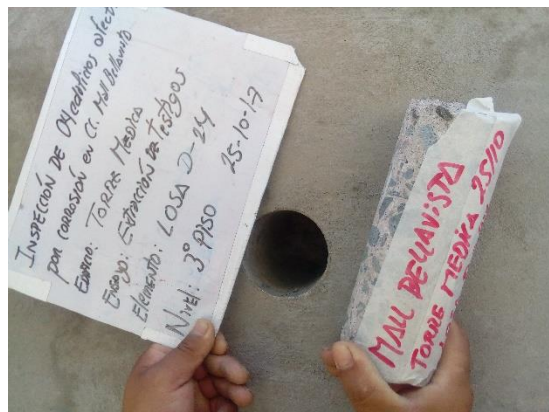 INSPECCIÓN DE 04 edificios afect
por corrosión en CC. Mall Bellavista
EDIFICIO: TORRE MEDICA
Ensayo: Extracción de Testigos
Elemento: LOSA D-24
Nivel: 3° PISO 25-10-17
MALL BELLAVISTA
TORRE MEDICA 25/10